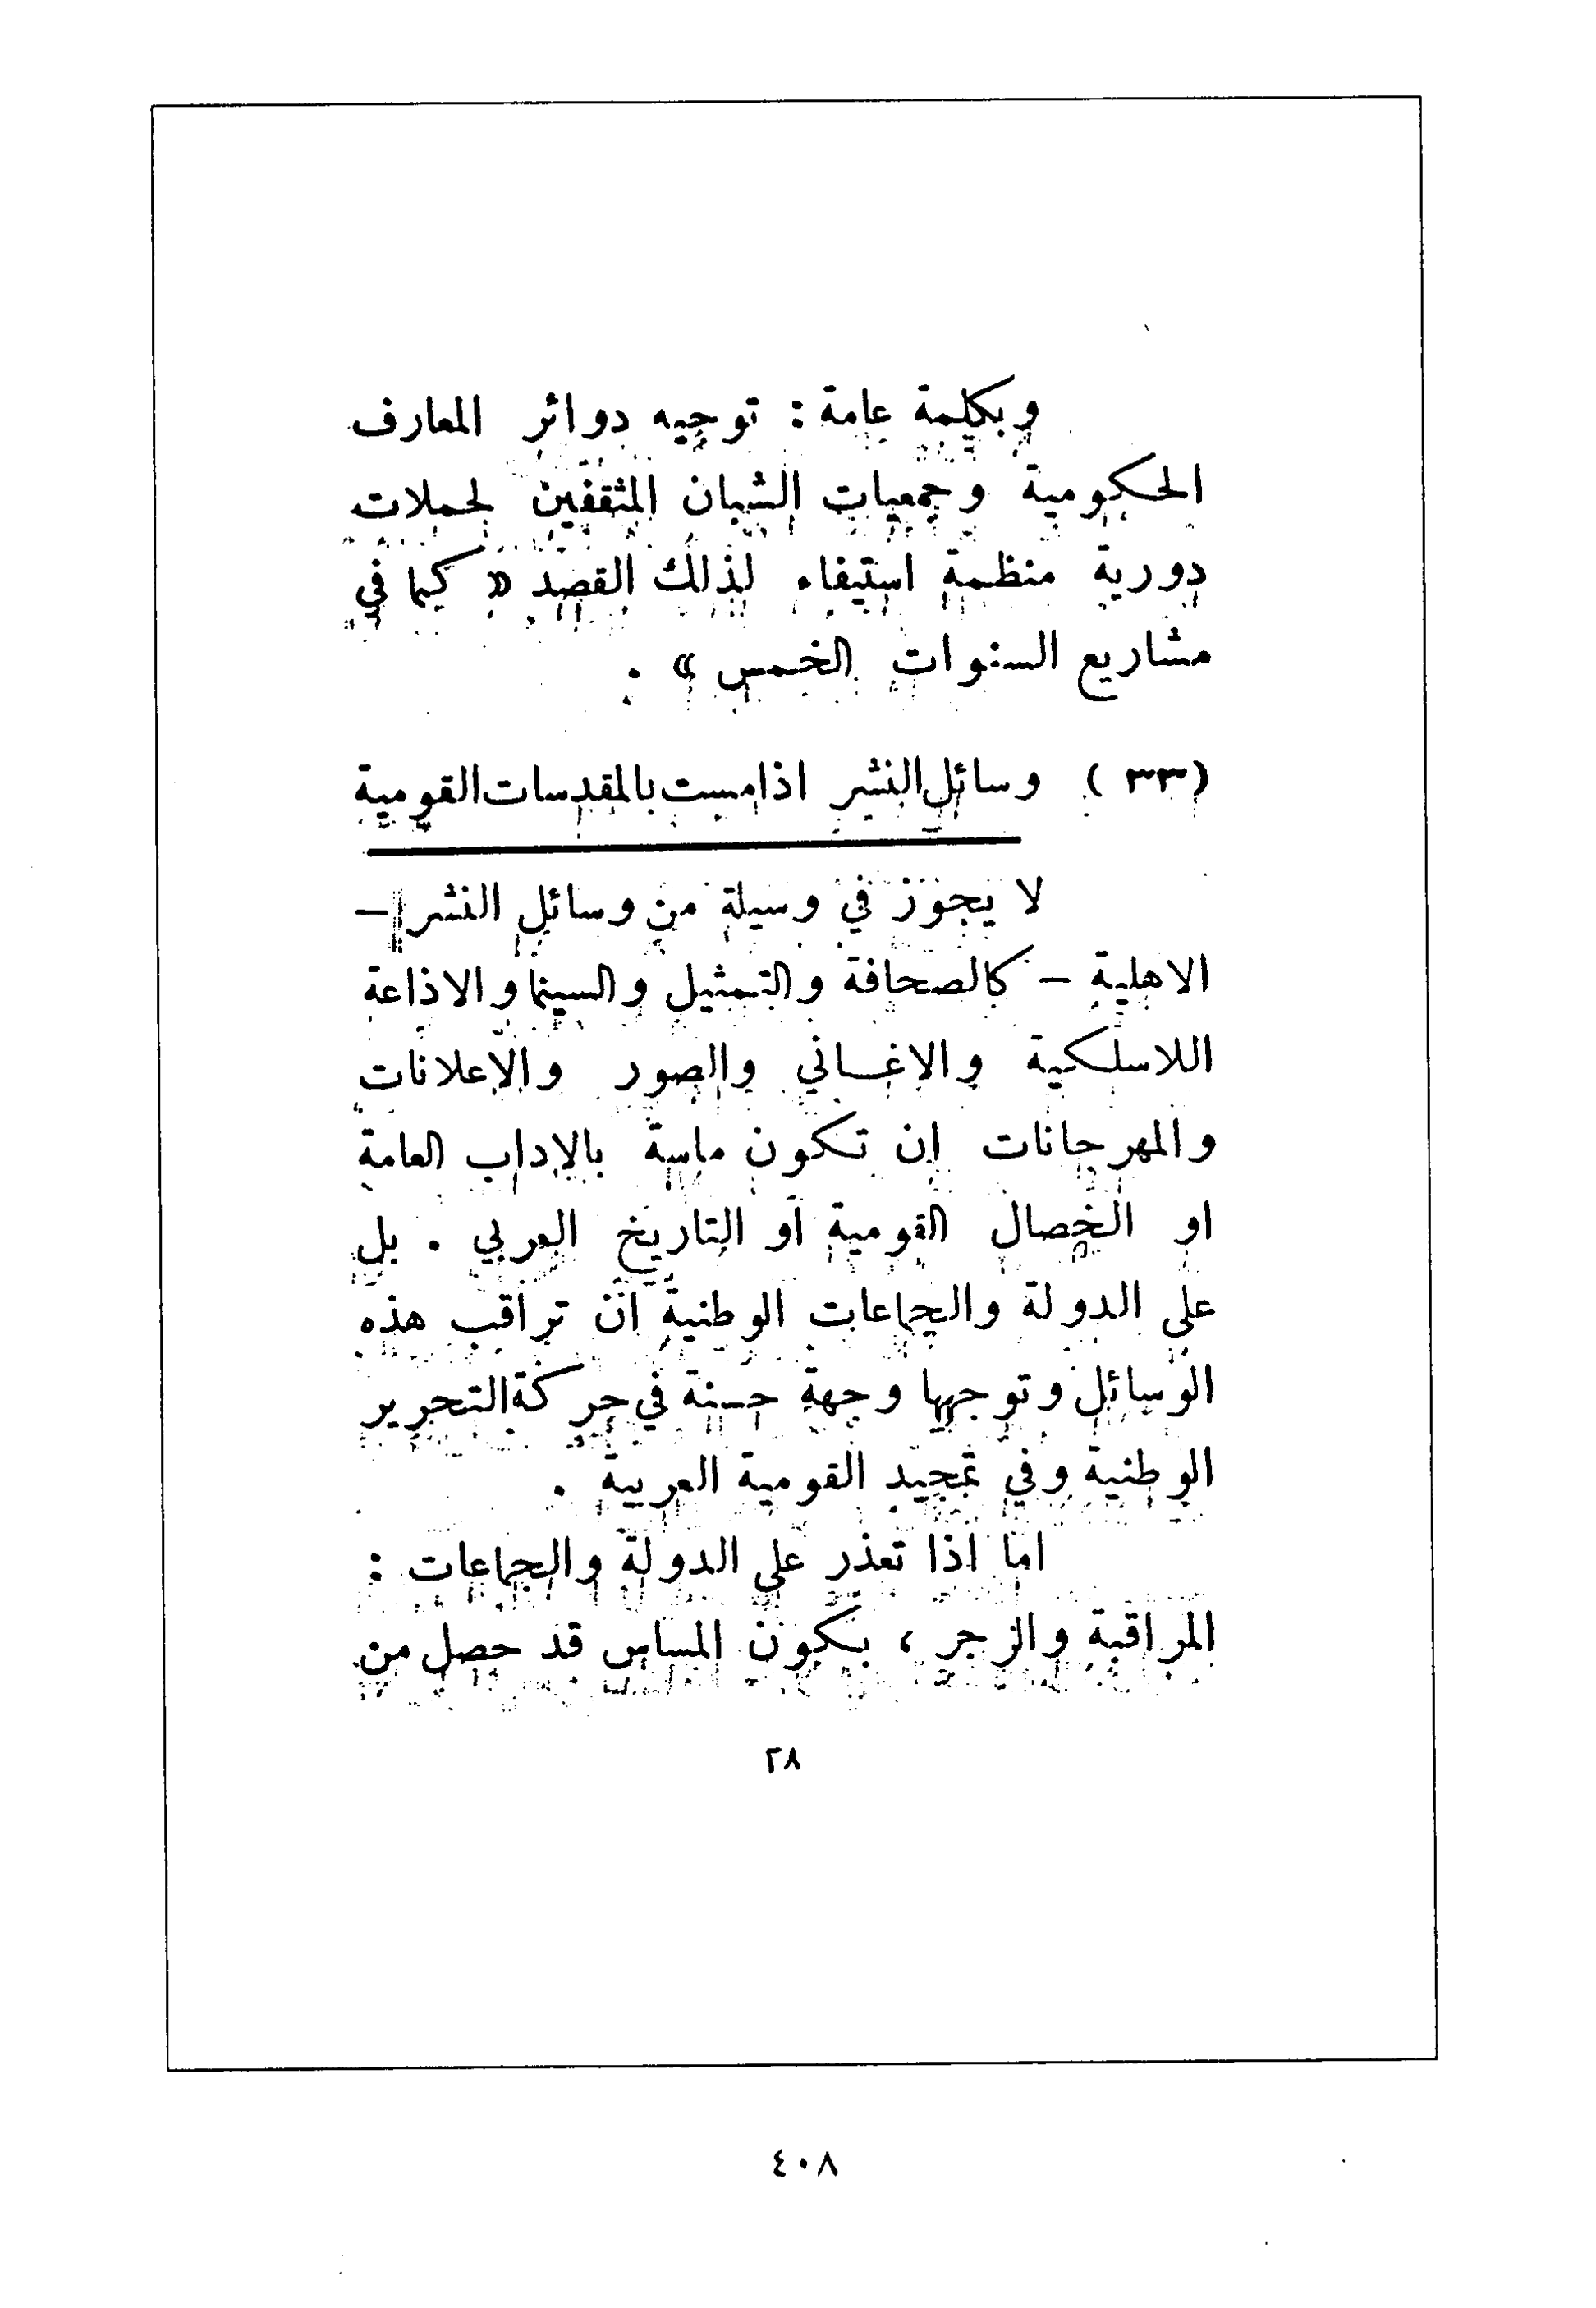 وبكلمة عامة : توجيه دوائر المعارف
الحكومية وجمعيات الشبان المثقفين لحملات
دورية منظمة استيفاء لذلك القصد « كما في
مشاريع السنوات الخمس » .
(٣٣) وسائل النشر اذا مست بالمقدسات القومية
لا يجوز في وسيلة من وسائل النشر –
الاهلية – كالصحافة والتمثيل والسينما والاذاعة
اللاسلكية والاغاني والصور والاعلانات
والمهرجانات ان تكون ماسة بالاداب العامة
او الخصال القومية او التاريخ العربي . بل
على الدولة والجماعات الوطنية ان تراقب هذه
الوسائل وتوجهها وجهة حسنة في حركة التحرير
الوطنية وفي تمجيد القومية العربية .
اما اذا تعذر على الدولة والجماعات :
المراقبة والزجر ، بكون المساس قد حصل من
٢٨
٤٠٨